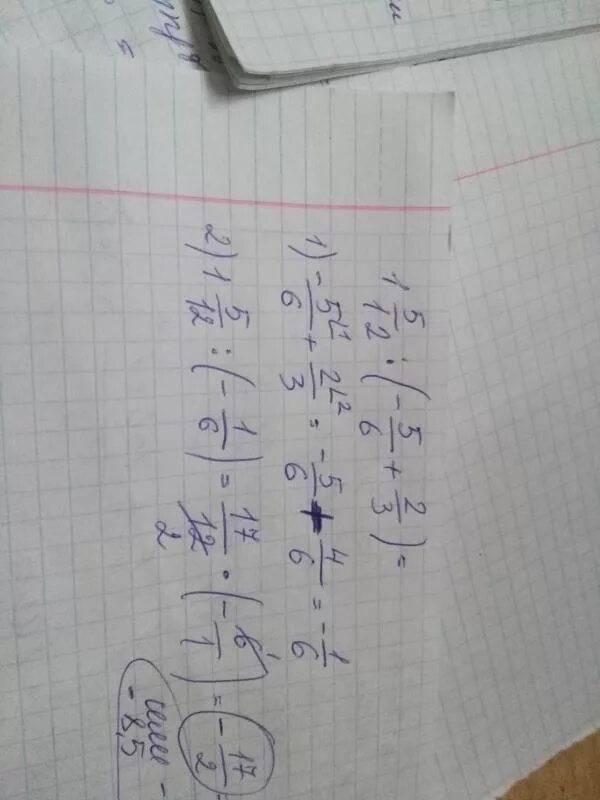 1 5/12 : (-5/6 + 2/3) =
1) -5∟1/6 + 2∟2/3 = -5/6 + 4/6 = -1/6
2) 1 5/12 : (-1/6) = 17/12 2 · (-6 1/1) = -17/2 =
или -
-8,5